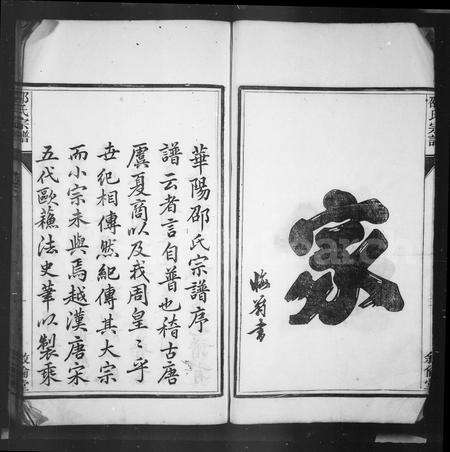 家
晦翁書
邵氏宗譜
敘倫堂
華陽邵氏宗譜序
譜云者言自普也稽古唐
虞夏商以及我周皇〻乎
世紀相傳然紀傳其大宗
而小宗未與焉越漢唐宋
五代歐蘓法史筆以製乘
邵氏宗譜
敘倫堂